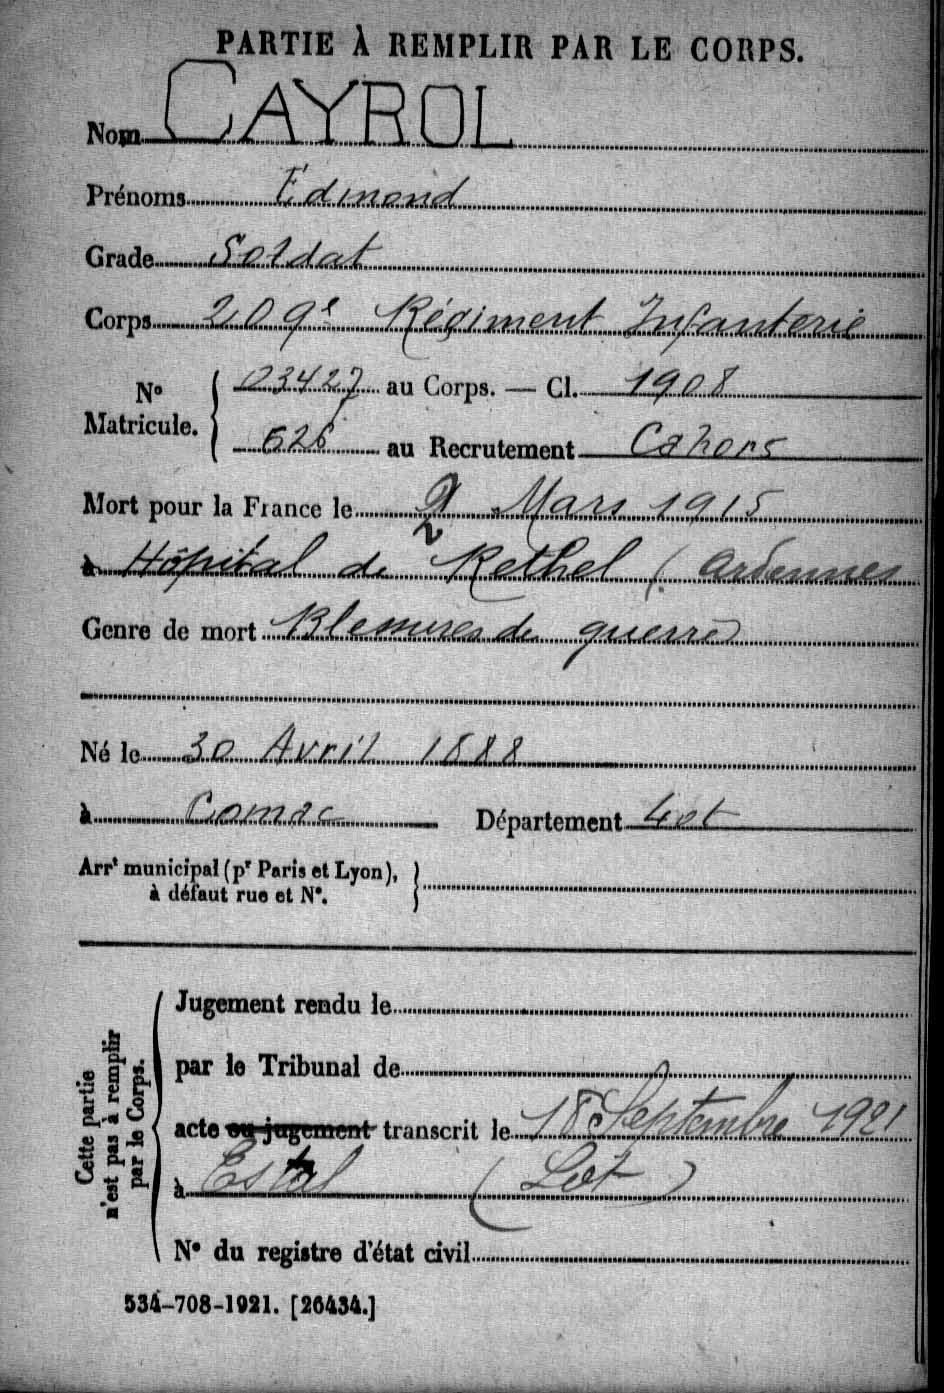 PARTIE À REMPLIR PAR LE CORPS.
Nom CAYROL
Prénoms Edmond
Grade Soldat
Corps 209e Régiment Infanterie
No Matricule. { 03427 au Corps. — Cl. 1908
626 au Recrutement Cahors
Mort pour la France le 2 Mars 1915
à Hôpital de Rethel (Ardennes
Genre de mort Blessures de guerre
Né le 30 Avril 1888
à Comiac Département Lot
Arrt municipal (pr Paris et Lyon),
à défaut rue et No.
Cette partie n'est pas à remplir par le Corps.
Jugement rendu le
par le Tribunal de
acte ou jugement transcrit le 18 Septembre 1921
à Estal (Lot)
No du registre d'état civil
534-708-1921. [26434.]